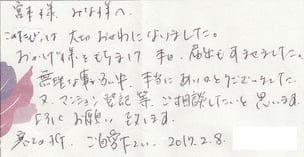 宮本様、みな様へ
このたびは大切おせわになりました。
おかげ様をもちまして本日、届出もすませました。
無理な事のい中、本当にありがとうございました。
又、マンション登記等ご相談したいと思います。
よろしくお願い致します。
ご自愛下さい。2017.2.8.